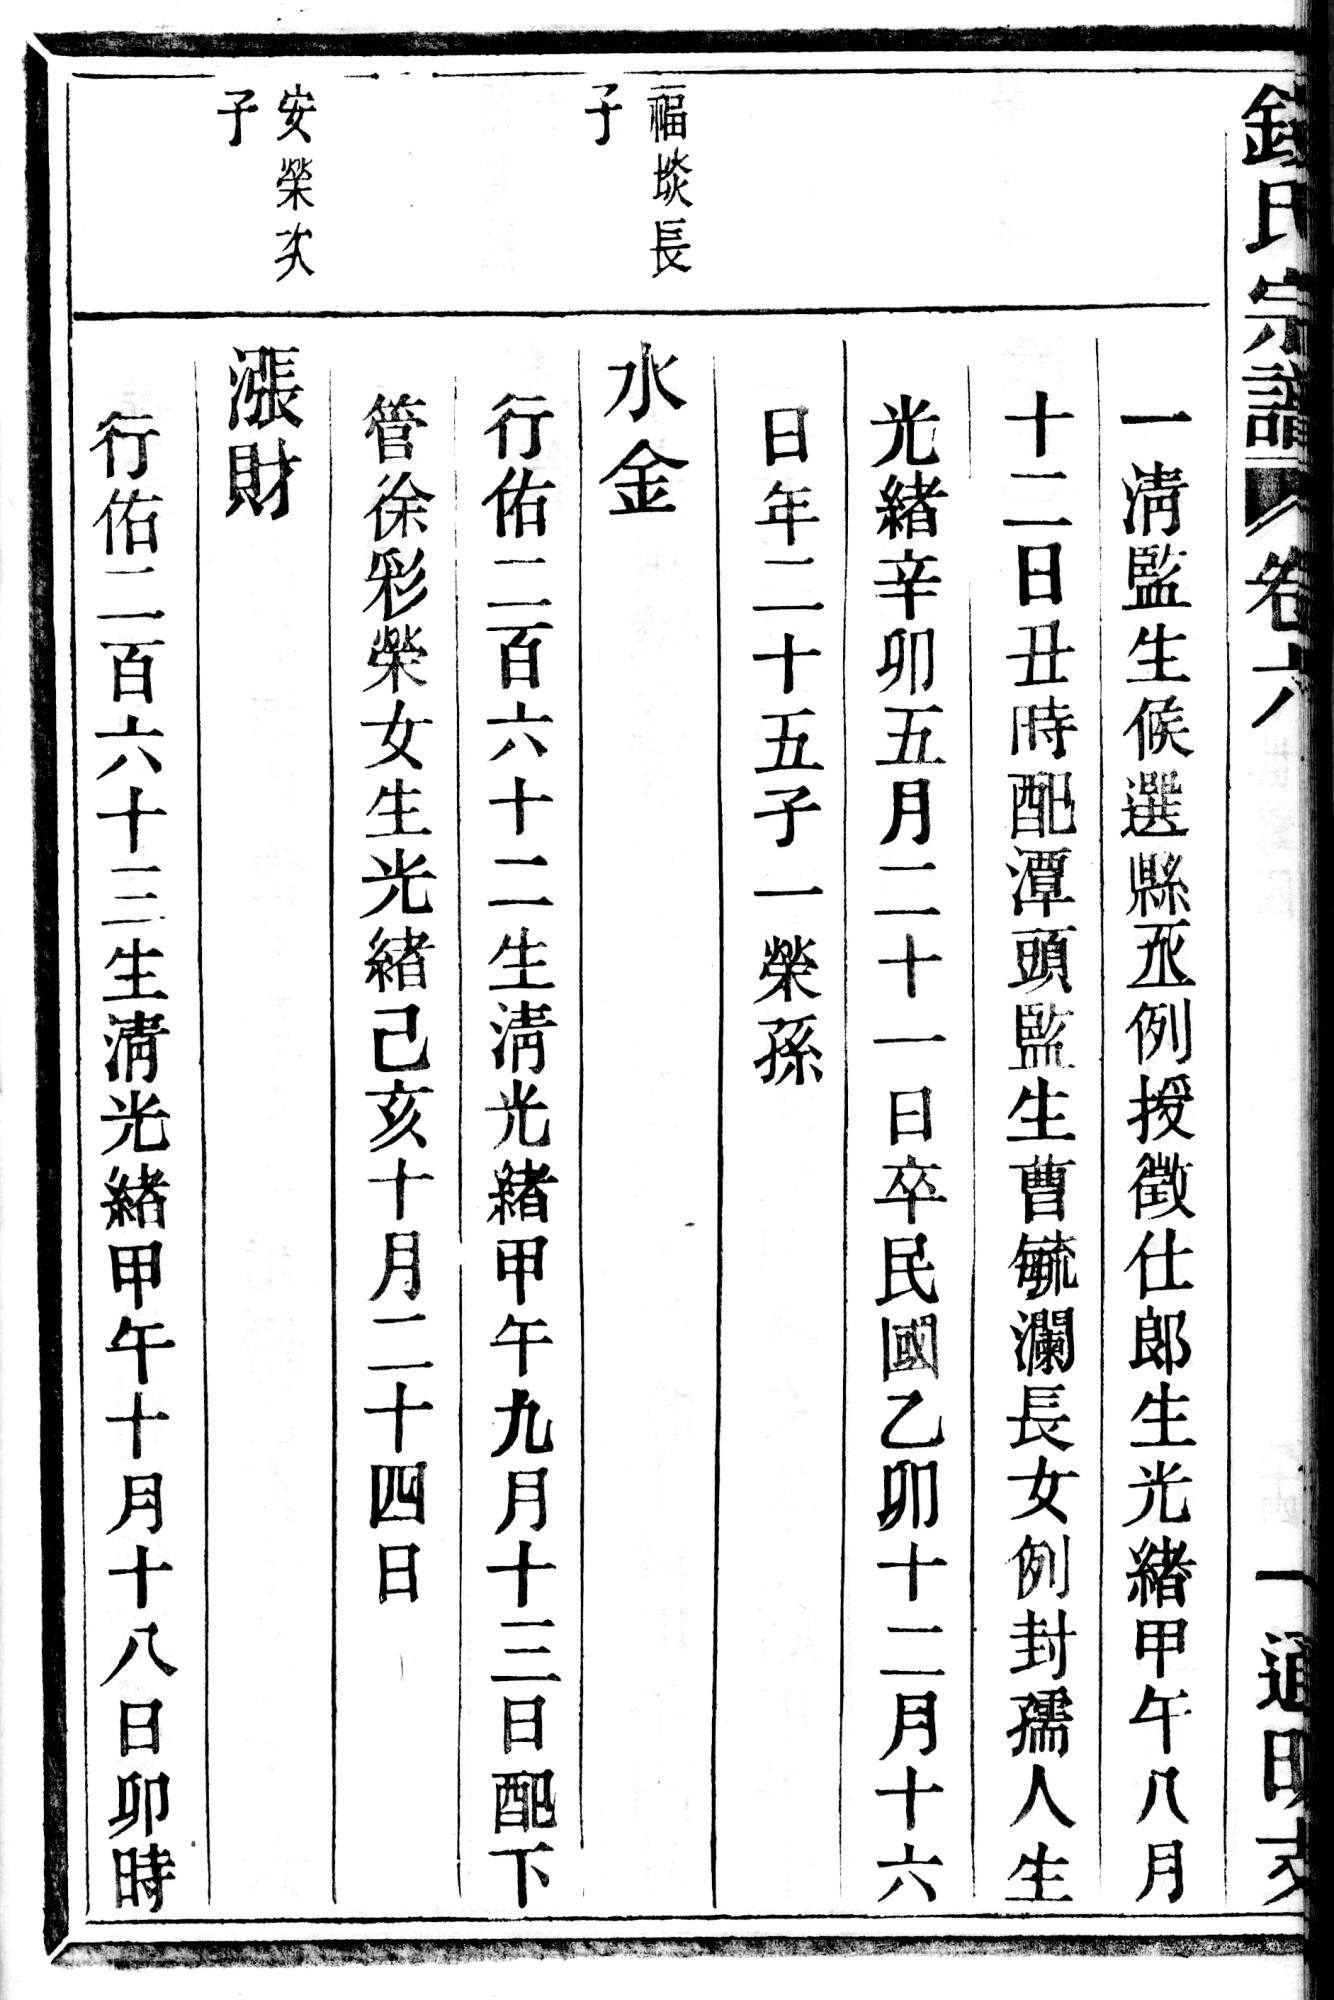 錢氏宗譜 卷六 一 通明支
一清監生候選縣丞例授徵仕郎生光緒甲午八月
十二日丑時配潭頭監生曹毓瀾長女例封孺人生
光緒辛卯五月二十一日卒民國乙卯十二月十六
日年二十五子一榮孫
福埮長
子
水金
行佑二百六十二生清光緒甲午九月十三日配下
管徐彩榮女生光緒己亥十月二十四日
安榮次
子
漲財
行佑二百六十三生清光緒甲午十月十八日卯時